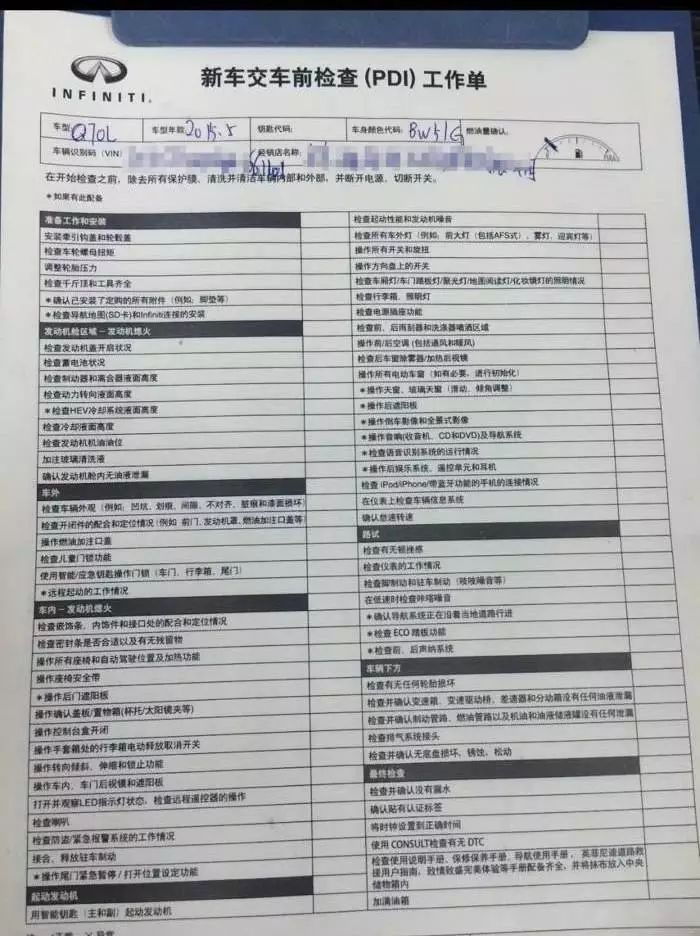 INFINITI.
新车交车前检查(PDI)工作单
车型: Q70L 车型年款: 2015.5 钥匙代码: 车身颜色代码: BW51G 燃油量确认:
车辆识别码(VIN) 经销店名称:
FULL
在开始检查之前,除去所有保护膜、清洗并清洁车辆内部和外部,并断开电源、切断开关。
*如果有此配备
准备工作和安装
安装牵引钩盖和轮毂盖
检查车轮螺母扭矩
调整轮胎压力
检查千斤顶和工具齐全
*确认已安装了定购的所有附件(例如:脚垫等)
*检查导航地图(SD卡)和Infiniti连接的安装
发动机舱区域-发动机熄火
检查发动机盖开启状况
检查蓄电池状况
检查制动器和离合器液面高度
检查动力转向液面高度
*检查HEV冷却系统液面高度
检查冷却液面高度
检查发动机机油油位
加注玻璃清洗液
确认发动机舱内无油液泄漏
车外
检查车辆外观(例如:凹坑、划痕、间隙、不对齐、脏痕和漆面损坏)
检查开闭件的配合和定位情况(例如 前门、发动机罩、燃油加注口盖等)
操作燃油加注口盖
检查儿童门锁功能
使用智能/应急钥匙操作门锁(车门、行李箱、尾门)
*远程起动的工作情况
车内-发动机熄火
检查嵌饰条、内饰件和接口处的配合和定位情况
检查密封条是否合适以及有无残留物
操作所有座椅和自动驾驶位置及加热功能
操作座椅安全带
*操作后门遮阳板
操作确认盖板/置物箱(杯托/太阳镜夹等)
操作控制台盒开闭
操作手套箱处的行李箱电动释放取消开关
操作转向倾斜、伸缩和锁止功能
操作车内、车门后视镜和遮阳板
打开并观察LED指示灯状态,检查远程遥控器的操作
检查喇叭
检查防盗/紧急报警系统的工作情况
接合、释放驻车制动
*操作尾门紧急暂停/打开位置设定功能
起动发动机
用智能钥匙(主和副)起动发动机
检查起动性能和发动机噪音
检查所有车外灯(例如:前大灯(包括AFS式)、雾灯、迎宾灯等)
操作所有开关和旋扭
操作方向盘上的开关
检查车厢灯/车门踏板灯/聚光灯/地图阅读灯/化妆镜灯的照明情况
检查行李箱、照明灯
检查电源插座功能
检查前、后雨刮器和洗涤器喷洒区域
操作前/后空调(包括通风和暖风)
检查后车窗除雾器/加热后视镜
操作所有电动车窗(如有必要,进行初始化)
*操作天窗、玻璃天窗(滑动、倾角调整)
*操作后遮阳板
*操作倒车影像和全景式影像
*操作音响(收音机、CD和DVD)及导航系统
*检查语音识别系统的运行情况
*操作后娱乐系统、遥控单元和耳机
检查iPod/iPhone/带蓝牙功能的手机的连接情况
在仪表上检查车辆信息系统
确认怠速转速
路试
检查有无顿挫感
检查仪表的工作情况
检查脚制动和驻车制动(吱吱噪音等)
在低速时检查咔嗒噪音
*确认导航系统正在沿着当地道路行进
*检查ECO踏板功能
*检查前、后声纳系统
车辆下方
检查有无任何轮胎损坏
检查并确认变速箱、变速驱动桥、差速器和分动箱没有任何油液泄漏
检查并确认制动管路、燃油管路以及机油和油液储液罐没有任何泄漏
检查排气系统接头
检查并确认无底盘损坏、锈蚀、松动
最终检查
检查并确认没有漏水
确认贴有认证标签
将时钟设置到正确时间
使用CONSULT检查有无DTC
检查使用说明手册、保修保养手册、导航使用手册、英菲尼迪道路救
援用户指南、致情致盛完美体验等手册配备齐全,并将抹布放入中央
储物箱内
加满油箱